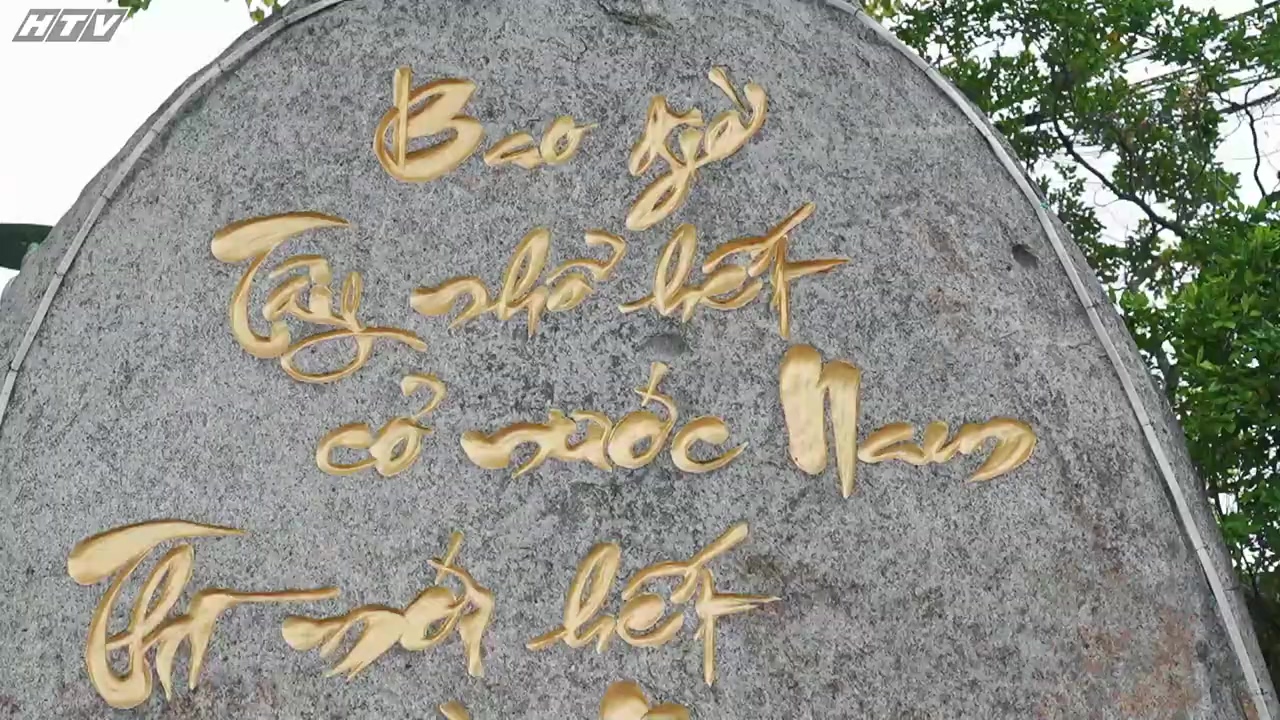 HTV
Bao giờ
Tây nhổ hết
cỏ nước Nam
Thì mới hết